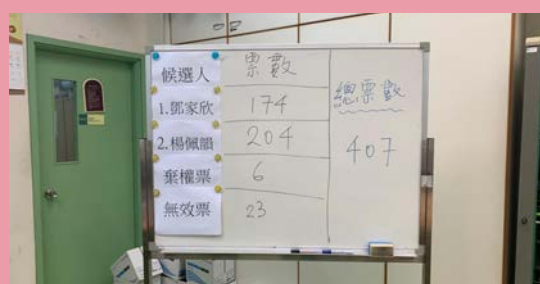 候選人 票數
1.鄧家欣 174
2.楊佩韻 204
棄權票 6
無效票 23
總票數
407